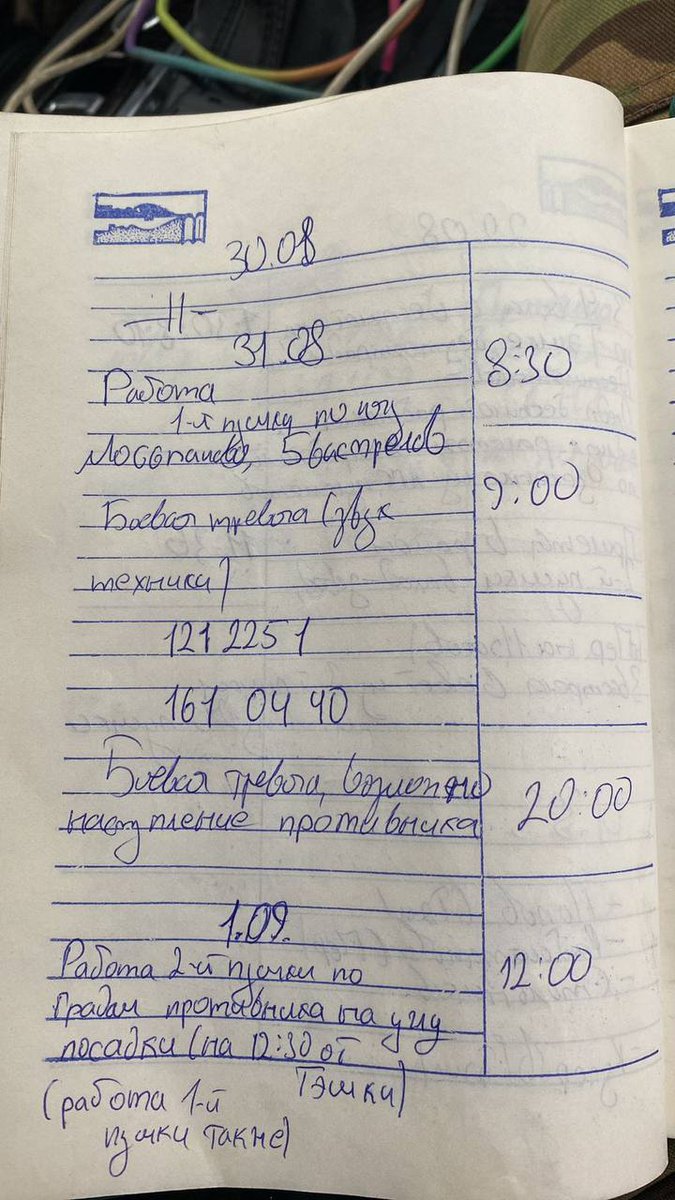 30.08
-11-
31.08
Работа 8:30
1-й пушки по
5 выстрелов
Боевая тревога (звук 9:00
техники)
121 225 1
161 04 40
Боевая тревога, возможно
наступление противника 20:00
1.09.
Работа 2-й пушки по 12:00
градам противника на углу
посадки (на 12:30 от
Тэшки)
(работа 1-й
пушки также)